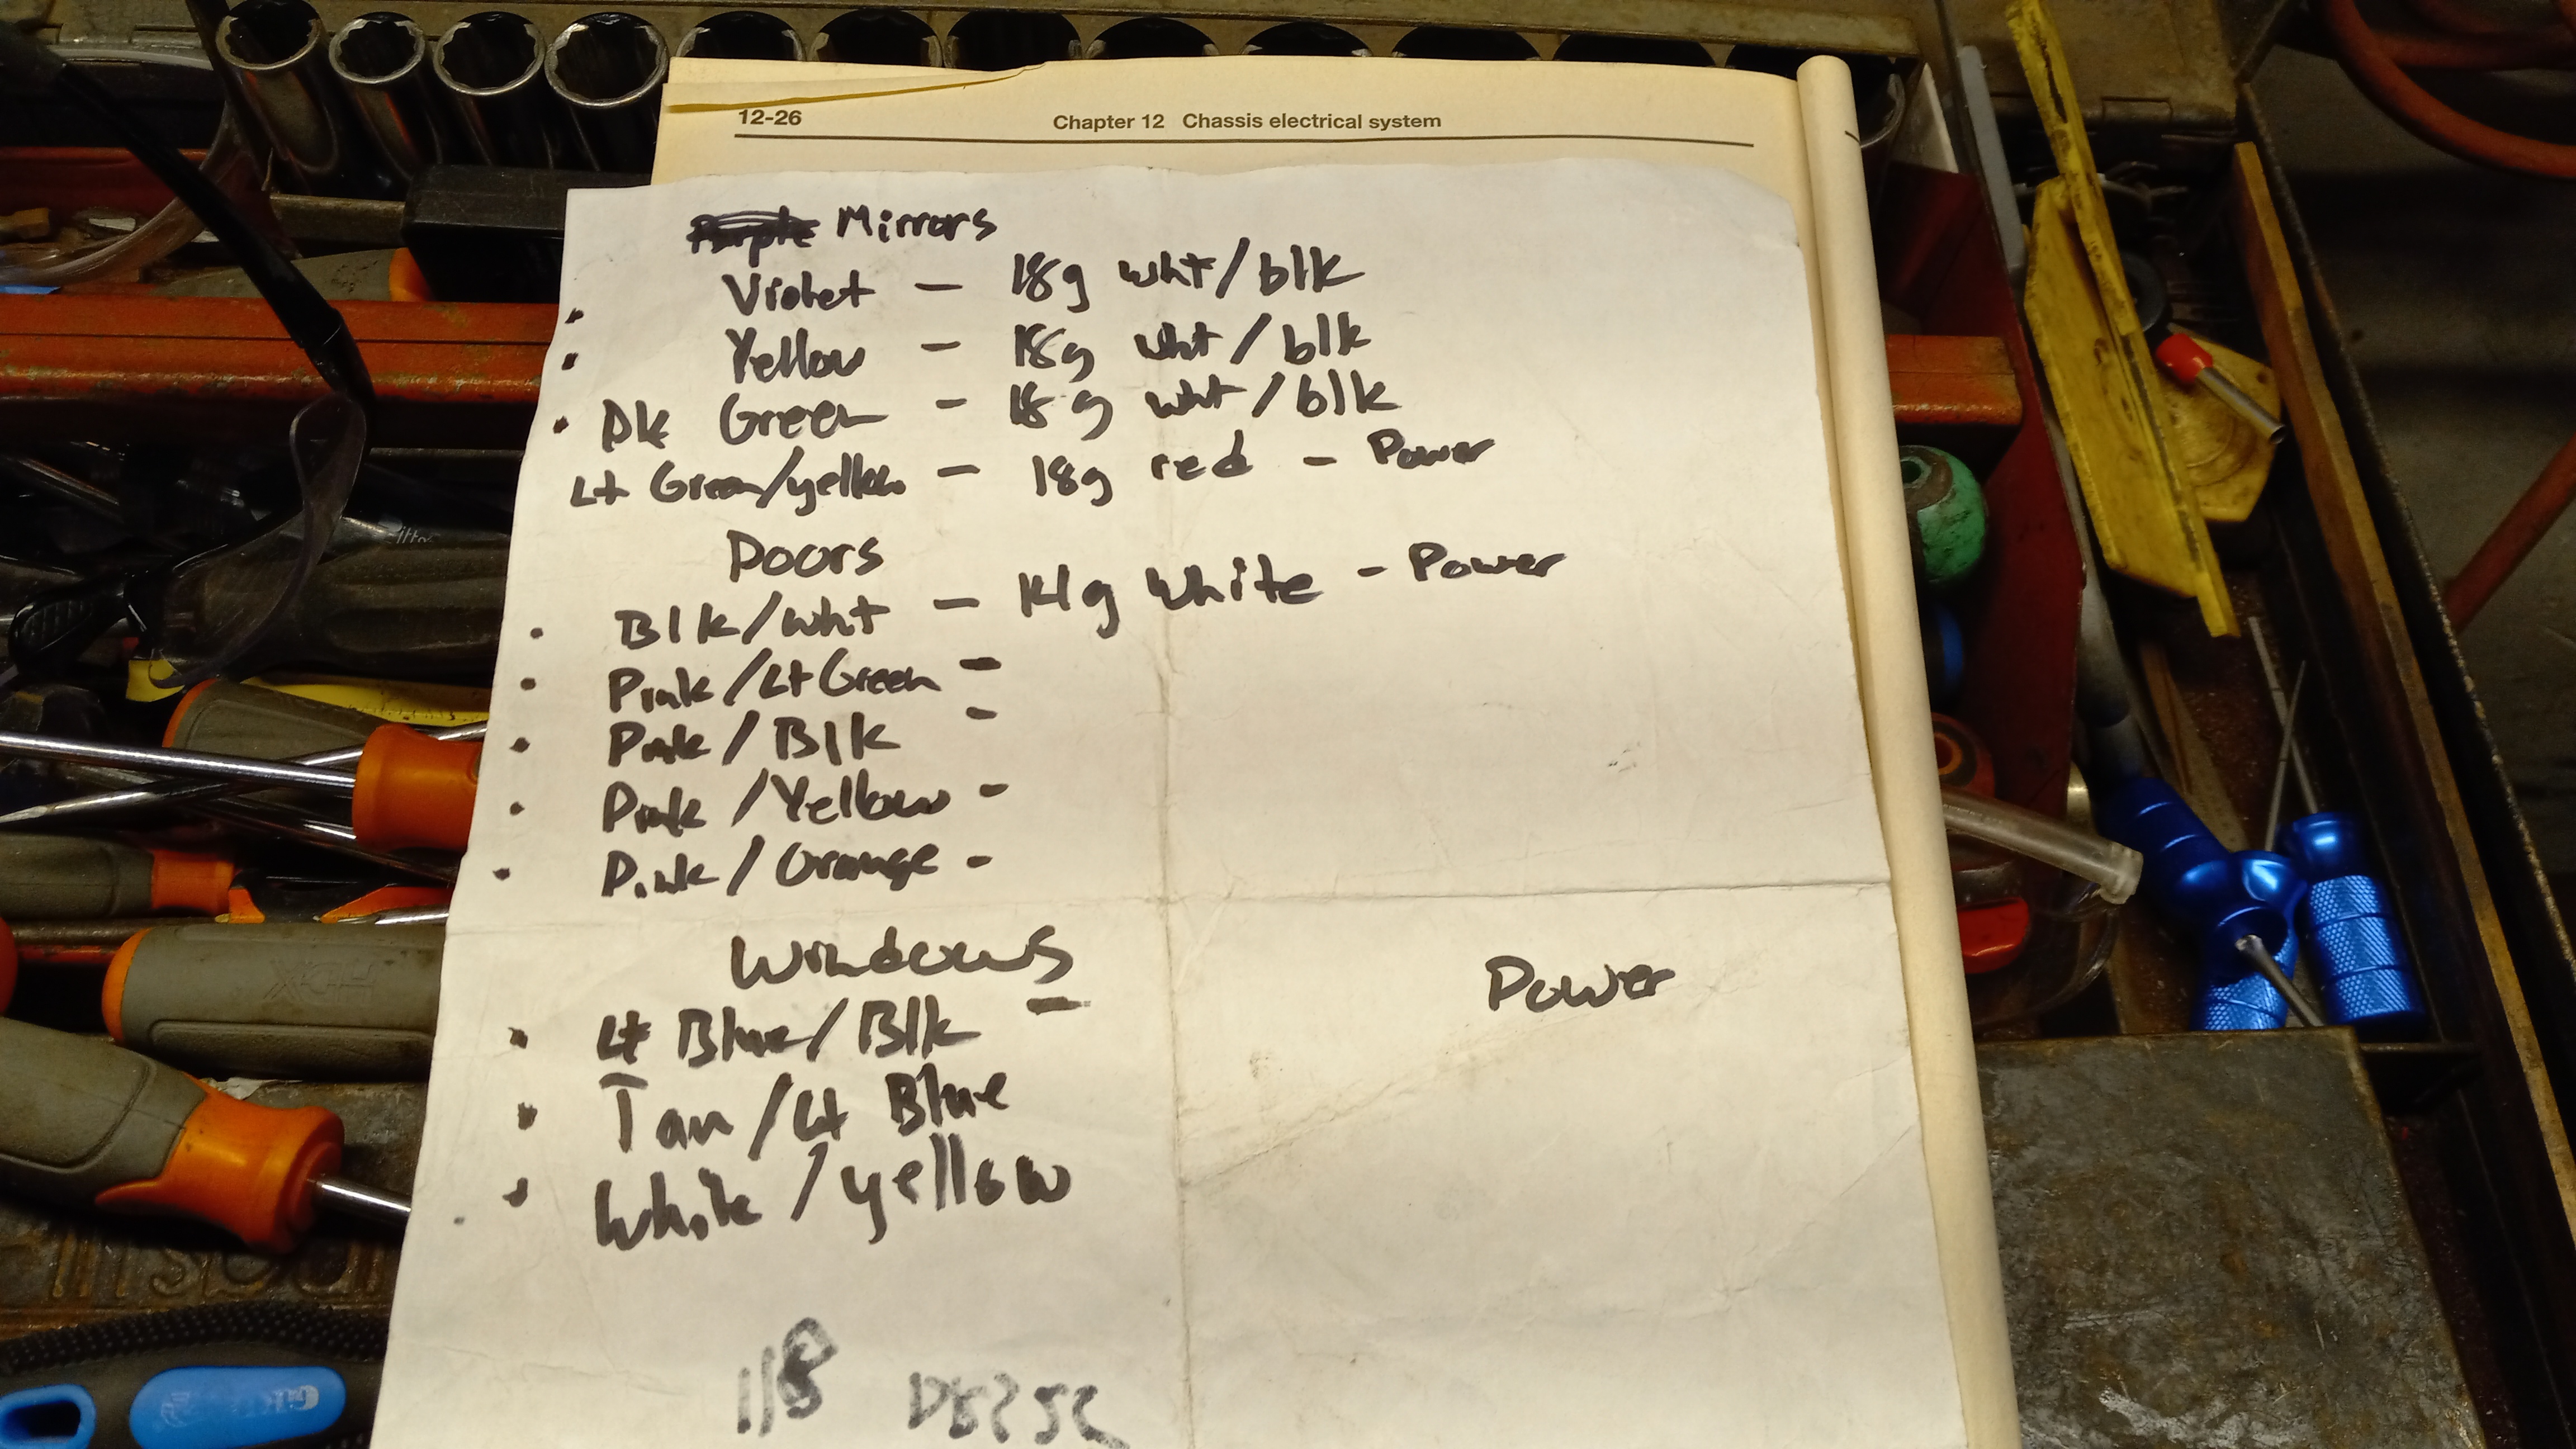 12-26 Chapter 12 Chassis electrical system
Mirrors
• Violet — 18g wht/blk
• Yellow — 18g wht/blk
• Dk Green — 18g wht/blk
Lt Green/yellow — 18g red - Power
Doors
• Blk/wht — 14g White - Power
• Pink/Lt Green -
• Pink/Blk -
• Pink/Yellow -
• Pink/Orange -
Windows
Power
• Lt Blue/Blk -
• Tan/Lt Blue
• White/yellow
HDX